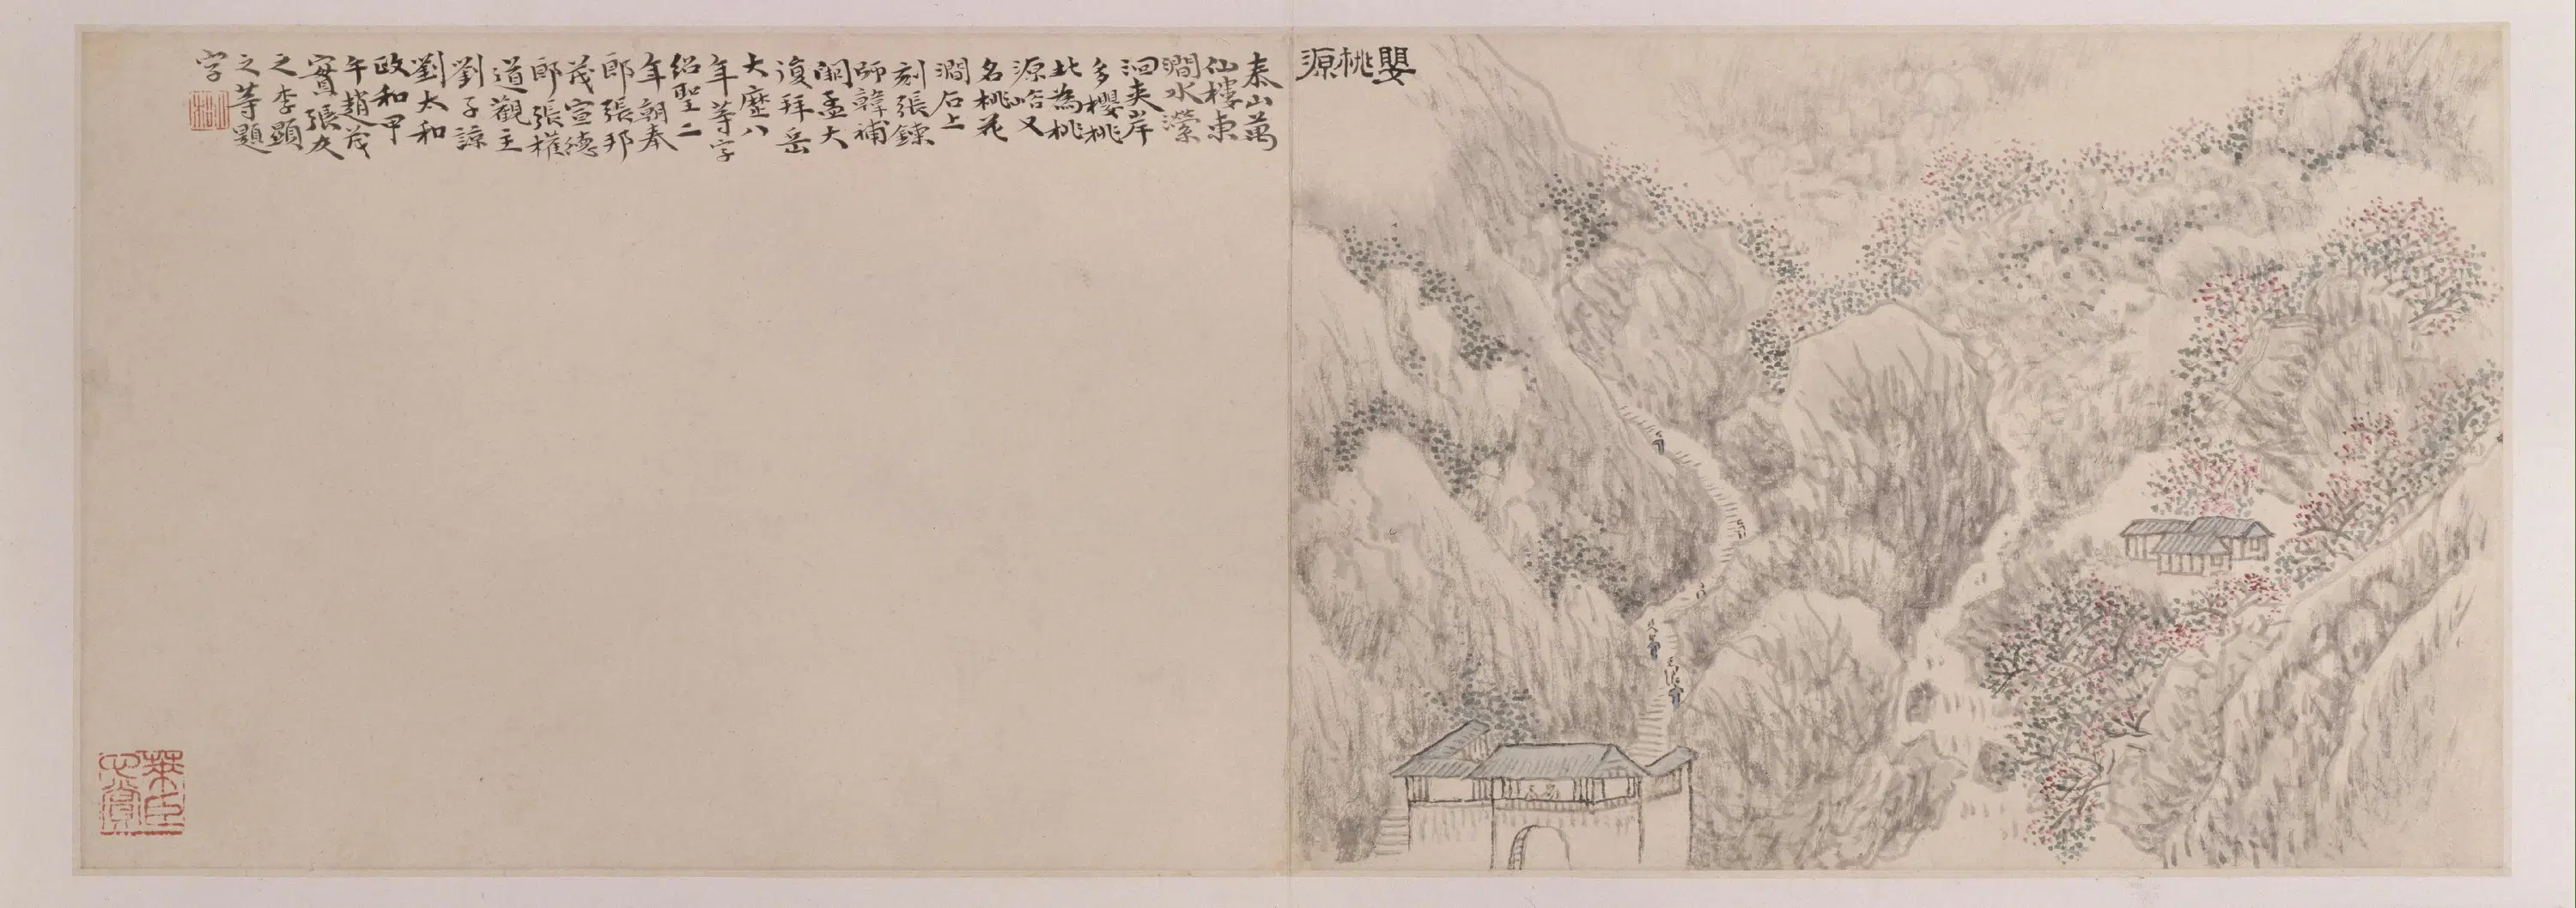 嬰桃源
泰山萬
仙樓東
澗水瀠
洄夾岸
多櫻桃
北為桃
源峪又
名桃花
澗石上
刻張鍊
師韓補
闕孟大
復拜岳
大歷八
年等字
紹聖二
年朝奉
郎張邦
茂宣德
郎張權
道觀主
劉子諒
劉太和
政和甲
午趙茂
實張友
之李顯
之等題
字
萊臣心賞